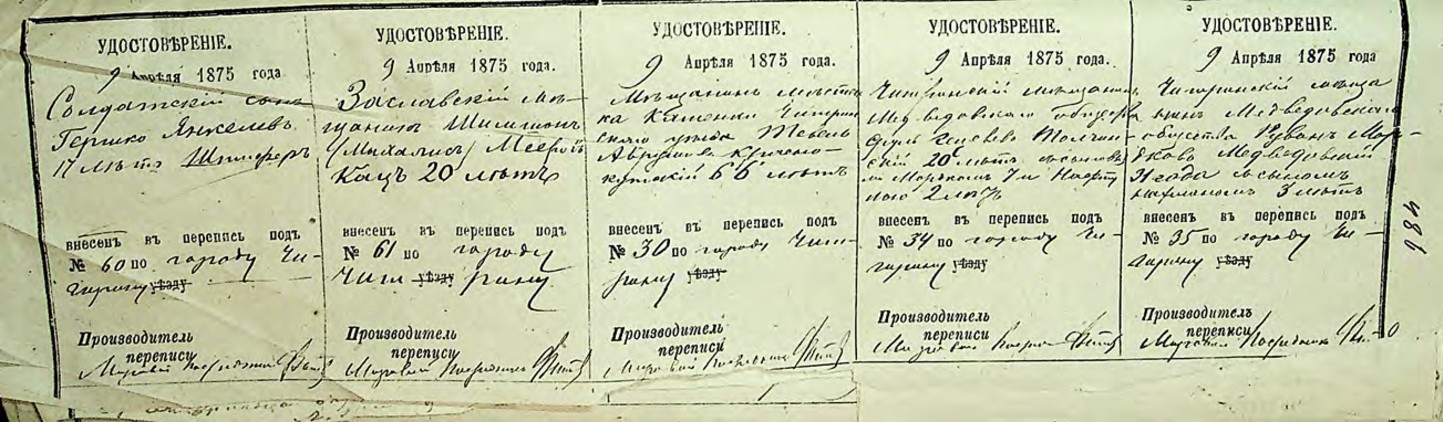 УДОСТОВѢРЕНІЕ.
9 Апрѣля 1875 года
Солдатскій сынъ
Гершко Янкелевъ
17 лѣтъ
внесенъ въ перепись подъ
№ 60 по городу Чи-
гирину уѣзду
Производитель
переписи
Мировой Посредникъ
УДОСТОВѢРЕНІЕ.
9 Апрѣля 1875 года.
Заславскій мѣ-
щанинъ Шимшонъ
(Михалисъ) Мееровъ
Кацъ 20 лѣтъ
внесенъ въ перепись подъ
№ 61 по городу
Чиги уѣзду рину
Производитель
переписи
Мировой Посредникъ
УДОСТОВѢРЕНІЕ.
9 Апрѣля 1875 года.
Мѣщанинъ мѣстеч
ка Каменки Чигирин
скаго уѣзда Тевель
66 лѣтъ
внесенъ въ перепись подъ
№ 30 по городу Чиги-
рину уѣзду
Производитель
переписи
Мировой Посредникъ
УДОСТОВѢРЕНІЕ.
9 Апрѣля 1875 года.
Чигиринскій мѣщанинъ
Медведовскаго общества
20 лѣтъ съ сыновья
ми Мордкомъ 7 и
2 лѣтъ
внесенъ въ перепись подъ
№ 34 по городу Чи-
гирину уѣзду
Производитель
переписи
Мировой Посредникъ
УДОСТОВѢРЕНІЕ.
9 Апрѣля 1875 года.
Чигиринскій мѣща
нинъ Медведовскаго
общества Рувинъ Мор-
дковъ Медведовскій
31 года съ сыномъ
Нахманомъ 3 лѣтъ
внесенъ въ перепись подъ
№ 35 по городу Чи-
гирину уѣзду
Производитель
переписи
Мировой Посредникъ
486